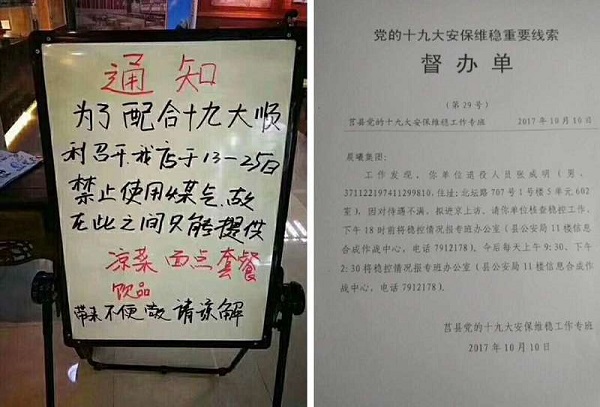 通知
为了配合十九大顺
利召开,我店于13-25日
禁止使用煤气,故
在此之间只能提供
凉菜 面点 套餐
饮品
带来不便敬请谅解
党的十九大安保维稳重要线索
督办单
(第29号)
莒县党的十九大安保维稳工作专班 2017年10月10日
晨曦集团:
工作发现,你单位退役人员张成明(男,
371122197411299810,住洼:北坛路707号1号楼5单元602
室),因对待遇不满,拟进京上访。请你单位核查稳控工作,
下午18时前将稳控情况报专班办公室(县公安局11楼信息合
成作战中心,电话7912178)。今后每天上午9:30、下午
2:30将稳控情况报专班办公室(县公安局11楼信息合成作
战中心,电话7912178)。
莒县党的十九大安保维稳工作专班
2017年10月10日